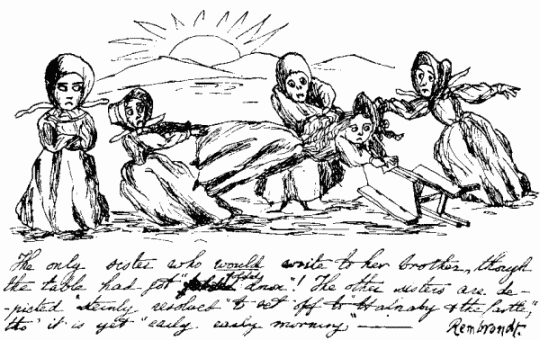 The only sister who would write to her brother, though
the table had just "folded down"! The other sisters are de-
picted "sternly resolved" to set off to Halnaby & the Castle,
tho' it is yet "early, early morning" —— Rembrandt.